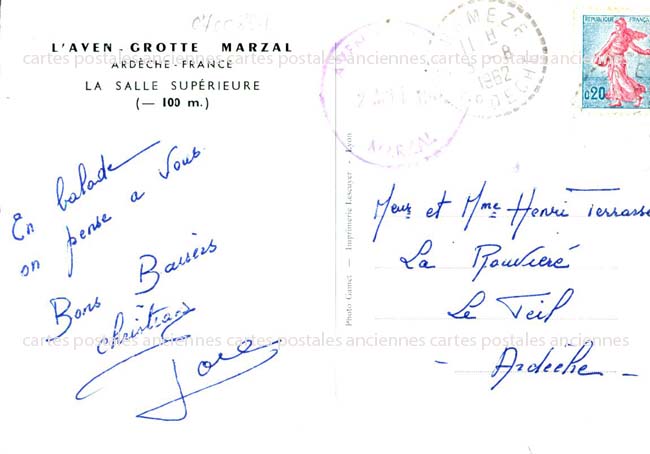 L'AVEN-GROTTE MARZAL
ARDÈCHE-FRANCE
LA SALLE SUPÉRIEURE
(— 100 m.)
En balade
on pense a vous
Bons Baisers
Christian
José
Photo Gamet - Imprimerie Lescuyer - Lyon
AVEN
MARZAL
11 H
8
1962
ARDECHE
REPUBLIQUE FRANÇAISE
0,20
Meur et Mme Henri Terrasse
La Rouvieré
Le Teil
- Ardèche -
cartes postales anciennes cartes postales anciennes cartes postales anciennes
cartes postales anciennes cartes postales anciennes cartes postales anciennes